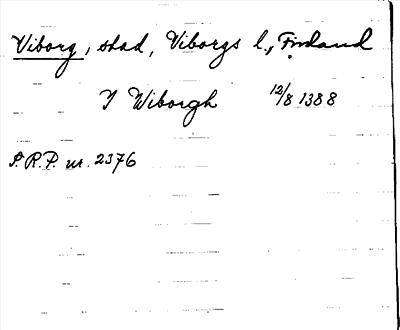 Viborg, stad, Viborgs l., Finland
I Wiborgh 12/8 1388
S.R.P. nr. 2376